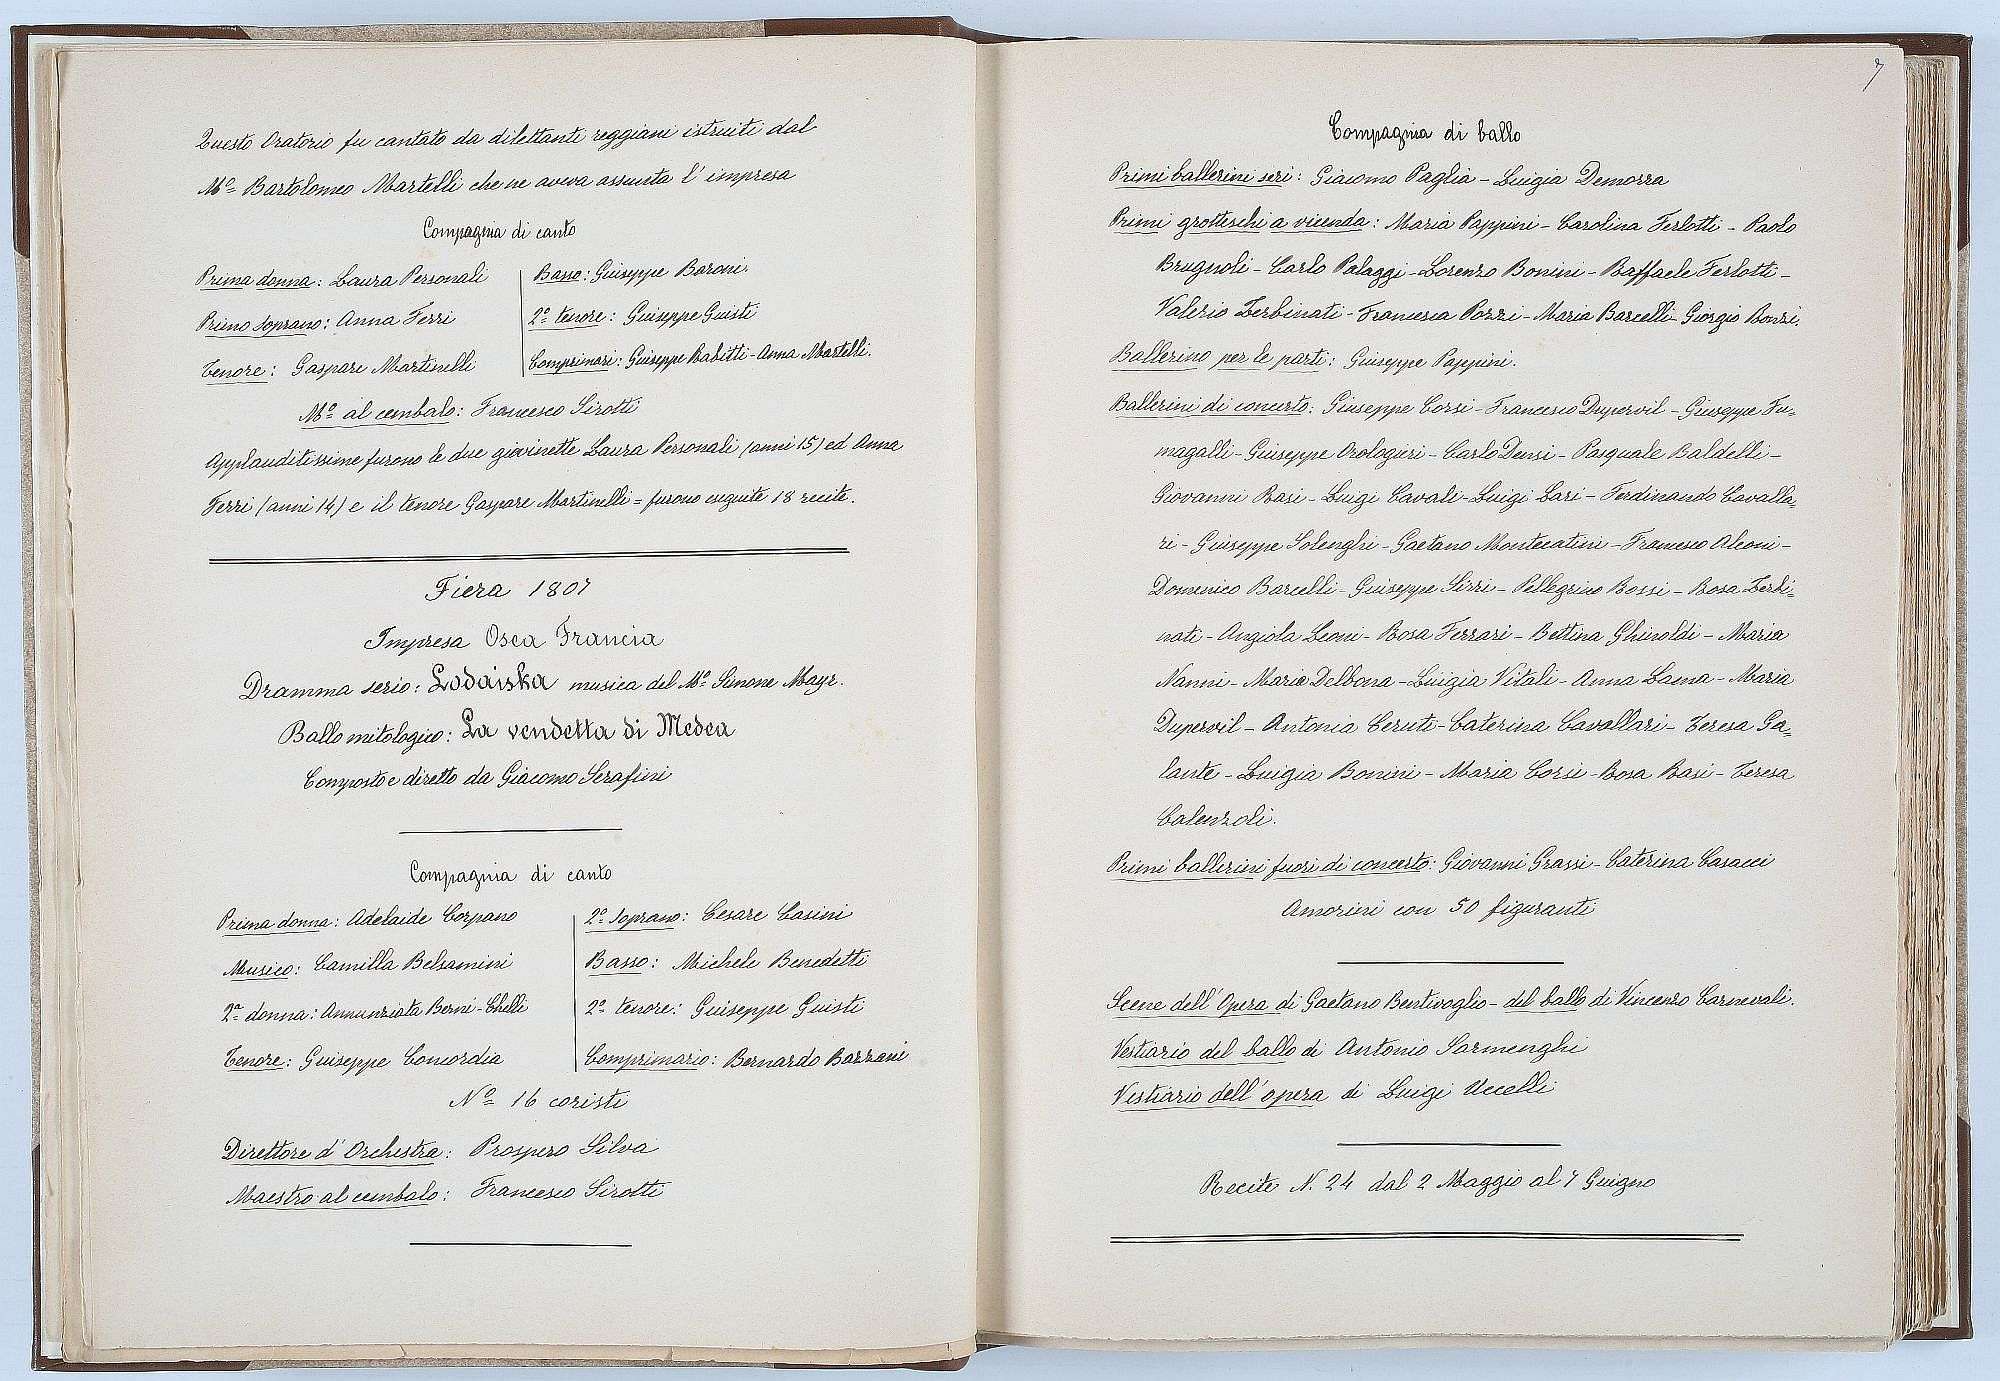 Questo Oratorio fu cantato da dilettanti reggiani istruiti dal
Mo. Bartolomeo Martelli che ne aveva assunta l'impresa
Compagnia di canto
Prima donna: Laura Personali
Primo soprano: Anna Ferri
Tenore: Gaspare Martinelli
Basso: Giuseppe Baroni.
2o tenore: Giuseppe Giusti
Comprimari: Giuseppe Babitti - Anna Martelli.
Mo al cembalo: Francesco Sirotti
Applauditissime furono le due giovinette Laura Personali (anni 15) ed Anna
Ferri (anni 14) e il tenore Gaspare Martinelli = furono eseguite 18 recite.
Fiera 1807
Impresa Osea Francia
Dramma serio: Lodaiska musica del Mo Simone Mayr.
Ballo mitologico: La vendetta di Medea
Composto e diretto da Giacomo Serafini
Compagnia di canto
Prima donna: Adelaide Corpano
Musico: Camilla Belsamini
2a donna: Annunziata Berni-Chelli
Tenore: Giuseppe Concordia
2o soprano: Cesare Casini
Basso: Michele Benedetti
2o tenore: Giuseppe Giusti
Comprimario: Bernardo Bazzani
No 16 coristi
Direttore d'Orchestra: Prospero Silva
Maestro al cembalo: Francesco Sirotti
7
Compagnia di ballo
Primi ballerini seri: Giacomo Paglia - Luigia Demorra
Primi grotteschi a vicenda: Maria Pappini - Carolina Ferlotti - Paolo
Brugnoli - Carlo Palaggi - Lorenzo Bonini - Raffaele Ferlotti -
Valerio Zerbinati - Francesca Pozzi - Maria Barcelli - Giorgio Bonzi.
Ballerino per le parti: Giuseppe Pappini.
Ballerini di concerto: Giuseppe Corsi - Francesco Dupervil - Giuseppe Fu=
magalli - Giuseppe Orologieri - Carlo Densi - Pasquale Baldelli -
Giovanni Basi - Luigi Cavali - Luigi Lari - Ferdinando Cavalla=
ri - Giuseppe Solenghi - Gaetano Montecatini - Francesco Aleoni -
Domenico Barcelli - Giuseppe Sirri - Pellegrino Rossi - Rosa Zerbi=
nati - Angiola Leoni - Rosa Ferrari - Bettina Ghinoldi - Maria
Nanni - Maria Delbona - Luigia Vitali - Anna Lama - Maria
Dupervil - Antonia Ceruti - Caterina Cavallari - Teresa Ga=
lante - Luigia Bonini - Maria Corsi - Rosa Basi - Teresa
Calenzoli.
Primi ballerini fuori di concerto: Giovanni Grassi - Caterina Casacci
Amorini con 50 figuranti
Scene dell'Opera di Gaetano Bentivoglio - del ballo di Vincenzo Carnevali.
Vestiario del ballo di Antonio Sarmenghi
Vestiario dell'opera di Luigi Uccelli
Recite N. 24 dal 2 Maggio al 7 Giugno